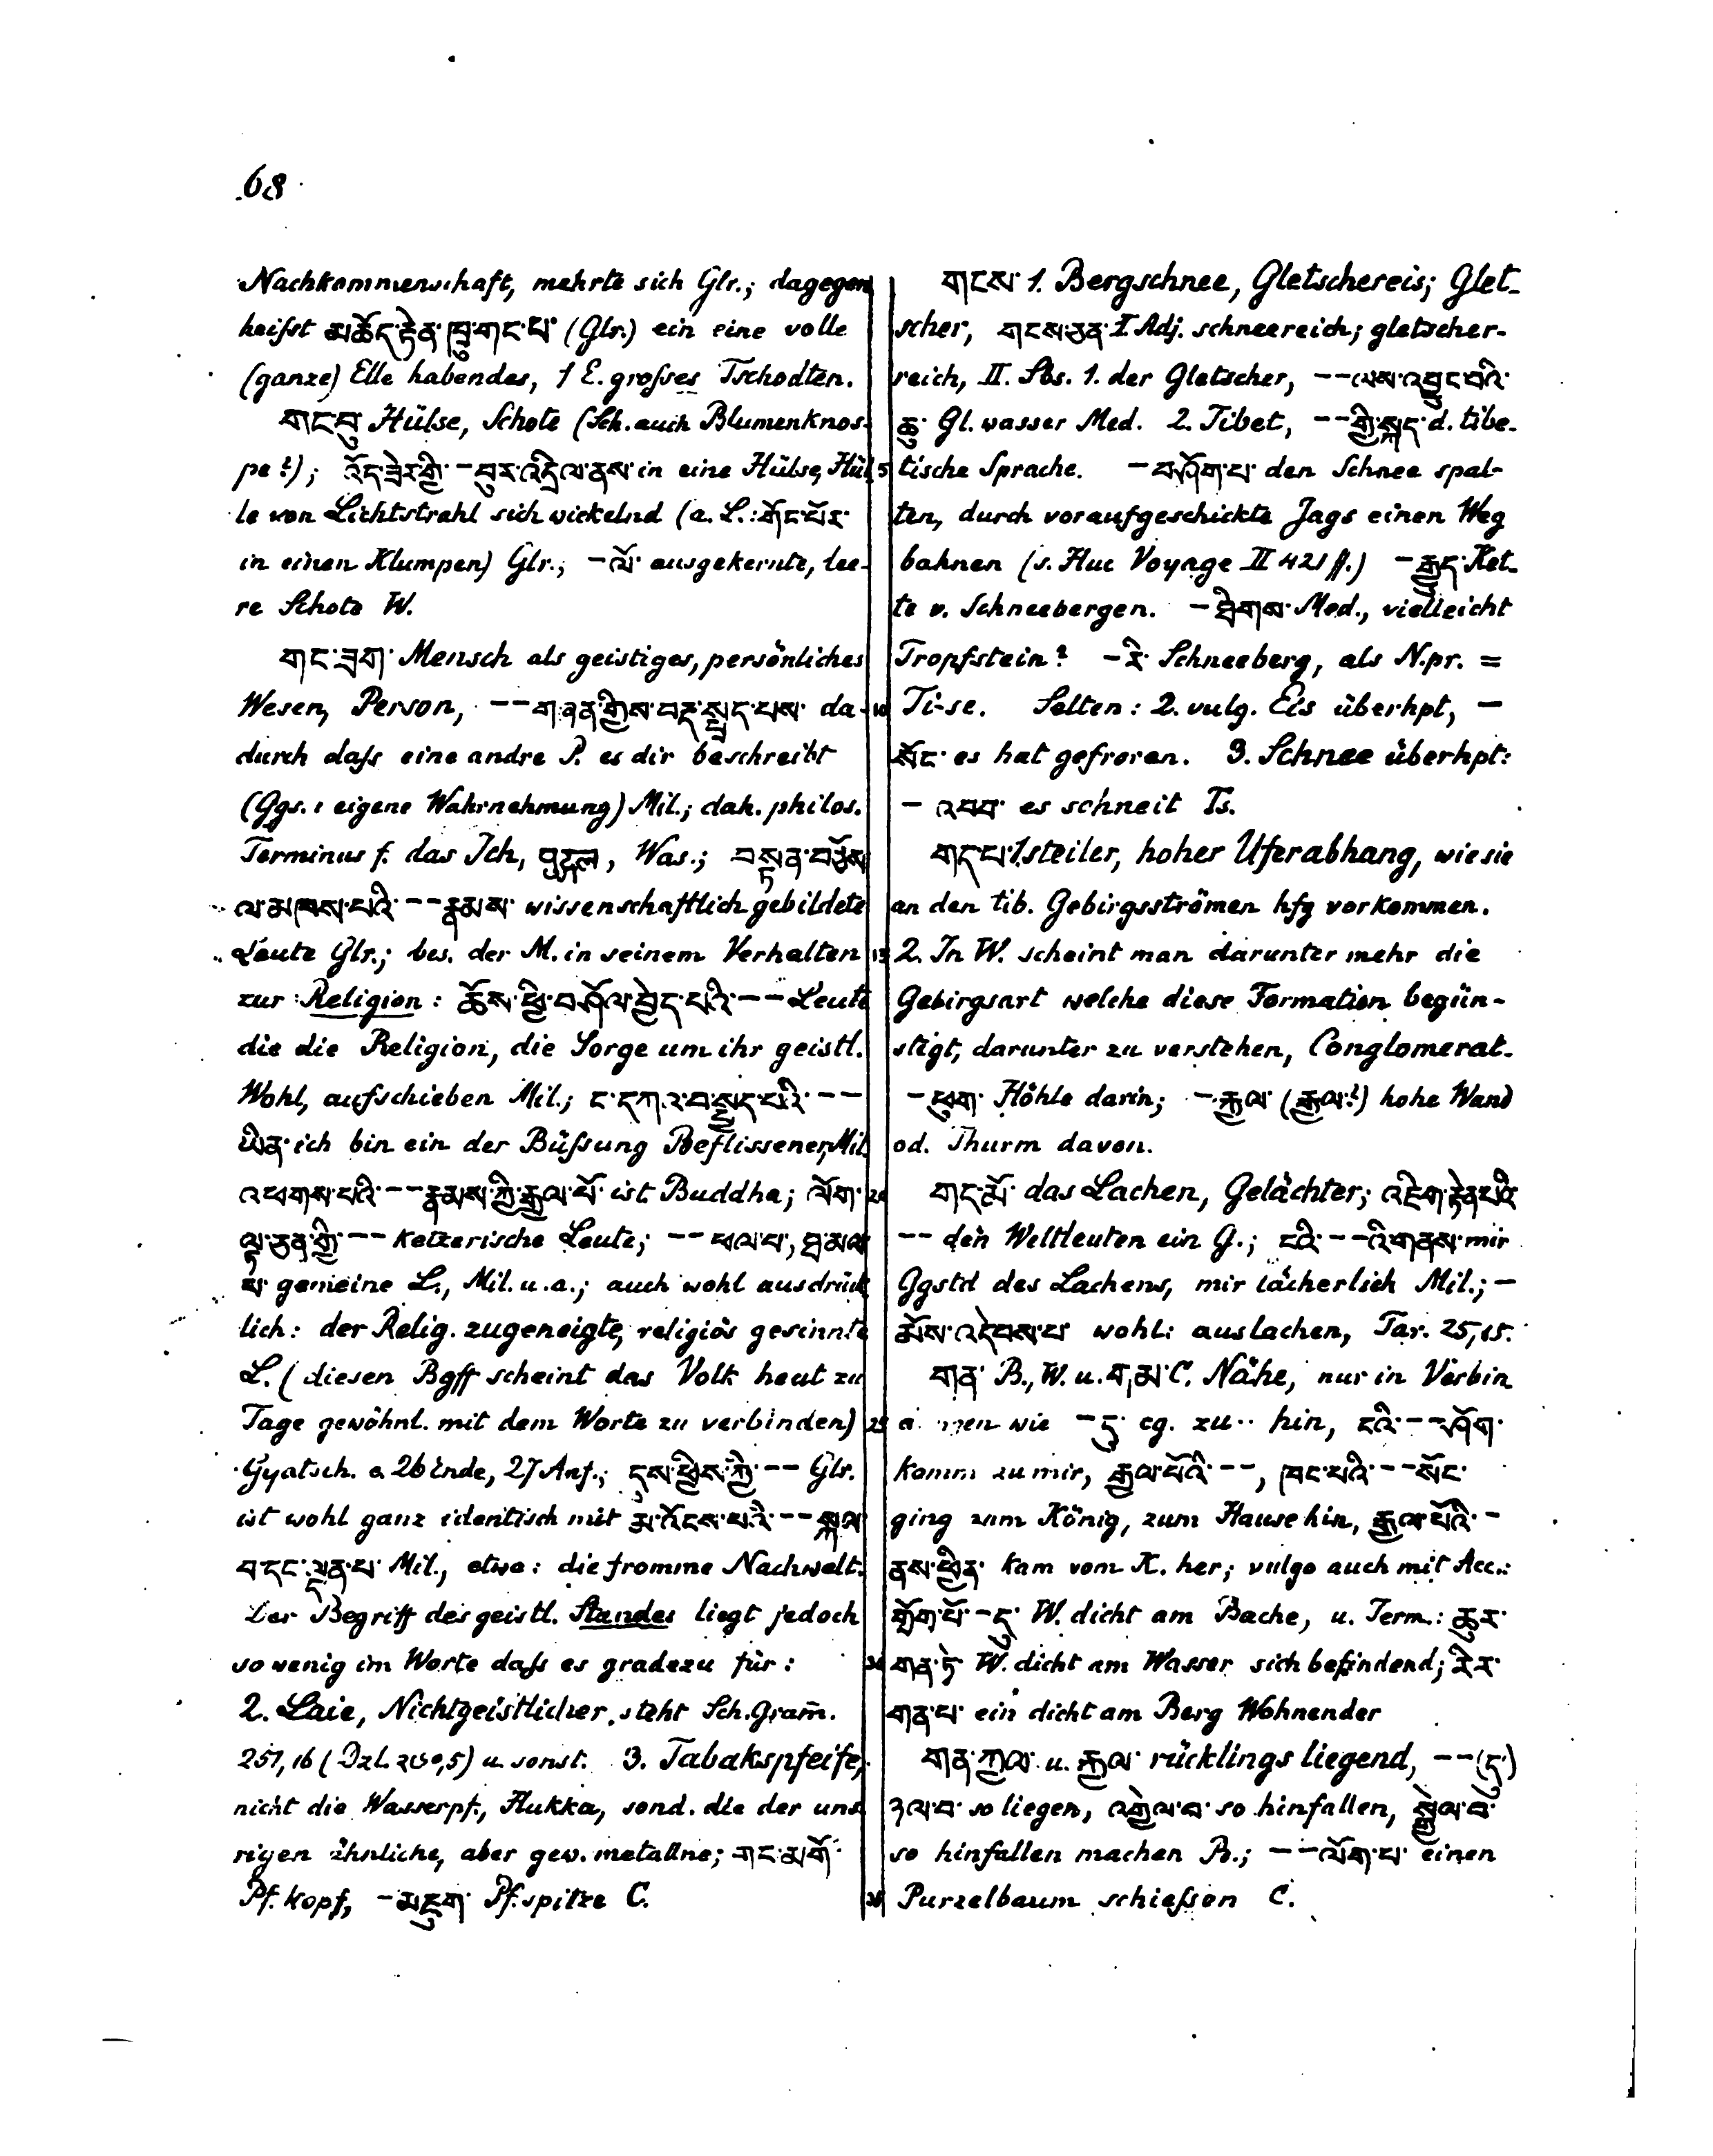 68
Nachkommenschaft, mehrte sich Glr.; dagegen
heißt མཆོད་རྟེན་ཁྲུ་གང་པ་ (Glr.) ein eine volle
(ganze) Elle habendes, 1 E. großes Tschodten.
གང་བུ་ Hülse, Schote (Sch. auch Blumenknos-
pe?); འོད་ཟེར་གྱི་ – བུར་འདྲིལ་ནས་ in eine Hülse, Hül-
le von Lichtstrahl sich wickelnd (a. L.: གོང་པོར་
in einen Klumpen) Glr.; – ལོ་ ausgekernte, lee-
re Schote W.
གང་ཟག་ Mensch als geistiges, persönliches
Wesen, Person, –– གཞན་གྱིས་བརྡ་སྤྲད་པས་ da-
durch daß eine andre P. es dir beschreibt
(Ggs.: eigene Wahrnehmung) Mil.; dah. philos.
Terminus f. das Ich, पुद्गल, Was.; བསྟན་བཅོས་
ལ་མཁས་པའི་ –– རྣམས་ wissenschaftlich gebildete
Leute Glr.; bes. der M. in seinem Verhalten
zur Religion: ཆོས་ཕྱི་བཤོལ་བྱེད་པའི་ –– Leute
die die Religion, die Sorge um ihr geistl.
Wohl, aufschieben Mil.; ང་དཀར་བ་སྤྱད་པའི་ ––
ཡིན་ ich bin ein der Büßung Beflissener, Mil.
འཕགས་པའི་ –– རྣམས་ཀྱི་རྒྱལ་པོ་ ist Buddha; ལོག་
ལྟ་ཅན་གྱི་ –– ketzerische Leute; –– ཕལ་པ་, ཐ་མལ་
པ་ gemeine L., Mil. u. a.; auch wohl ausdrück-
lich: der Relig. zugeneigte, religiös gesinnte
L. (diesen Bgff scheint das Volk heut zu
Tage gewöhnl. mit dem Worte zu verbinden)
Gyatsch. c. 26 Ende, 27 Anf.; དུས་ཕྱིས་ཀྱི་ –– Glr.
ist wohl ganz identisch mit མ་འོངས་པའི་ –– སྐལ་
བ་དང་ལྡན་པ་ Mil., etwa: die fromme Nachwelt.
Der Begriff des geistl. Standes liegt jedoch
so wenig im Worte daß es gradezu für:
2. Laie, Nichtgeistlicher, steht Sch. Gram̄.
251, 16 (Dzl. ༢༧༠, 5) u. sonst. 3. Tabakspfeife,
nicht die Wasserpf., Hukka, sond. die der uns-
rigen ähnliche, aber gew. metallne; གང་མགོ་
Pf. kopf, – མཇུག་ Pf. spitze C.
གངས་ 1. Bergschnee, Gletschereis; Glet-
scher, གངས་ཅན་ I Adj. schneereich; gletscher-
reich, II. Sbs. 1. der Gletscher, –– ལས་འབྱུང་བའི་
ཆུ་ Gl. wasser Med. 2. Tibet, –– གྱི་སྐད་ d. tibe-
5 tische Sprache. – བཤོག་པ་ den Schnee spal-
ten, durch voraufgeschickte Jags einen Weg
bahnen (s. Huc Voyage II 421 ff.) – རྒྱུད་ Ket-
te v. Schneebergen. – ཐིགས་ Med., vielleicht
Tropfstein? – རི་ Schneeberg, als N.pr. =
10 Ti-se. Selten: 2. vulg. Eis überhpt, –
སོང་ es hat gefroren. 3. Schnee überhpt:
– འབབ་ es schneit Ts.
གད་པ་ 1. steiler, hoher Uferabhang, wie sie
an den tib. Gebirgsströmen hfg vorkommen.
15 2. In W. scheint man darunter mehr die
Gebirgsart welche diese Formation begün-
stigt, darunter zu verstehen, Conglomerat.
– ཕུག་ Höhle darin; – རྐྱལ་ (རྒྱལ་?) hohe Wand
od. Thurm davon.
20 གད་མོ་ das Lachen, Gelächter; འཇིག་རྟེན་པའི་
–– den Weltleuten ein G.; ངའི་ –– འི་གནས་ mir
Ggstd des Lachens, mir lächerlich Mil.; –
མོས་འདེབས་པ་ wohl: auslachen, Tar. 25, 15.
གན་ B., W. u. C. Nähe, nur in Verbin
25 wie – དུ་ cg. zu ·· hin, ངའི་ –– ཤོག་
komm zu mir, རྒྱལ་པོའི་ ––, ཁང་པའི་ –– སོང་
ging zum König, zum Hause hin, རྒྱལ་པོའི་ –
ནས་ཕྱིན་ kam vom K. her; vulgo auch mit Acc.:
གྲོག་པོ་ – དུ་ W. dicht am Bache, u. Term.: ཆུར་
30 གན་ཏེ་ W. dicht am Wasser sich befindend; རིར་
གན་པ་ ein dicht am Berg Wohnender
གན་ཀྱལ་ u. རྐྱལ་ rücklings liegend, –– (དུ་)
ཉལ་བ་ so liegen, འགྱེལ་བ་ so hinfallen, སྒྱེལ་བ་
so hinfallen machen B.; –– ལོག་པ་ einen
35 Purzelbaum schießen C.